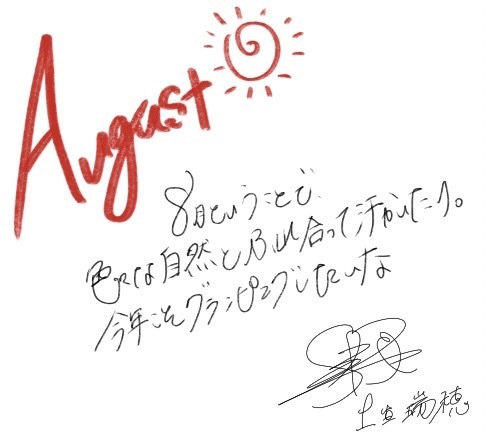 August
8月ということで、
色々な自然とふれ合って汗かいたり。
今年こそグランピングしたいな
土生瑞穂